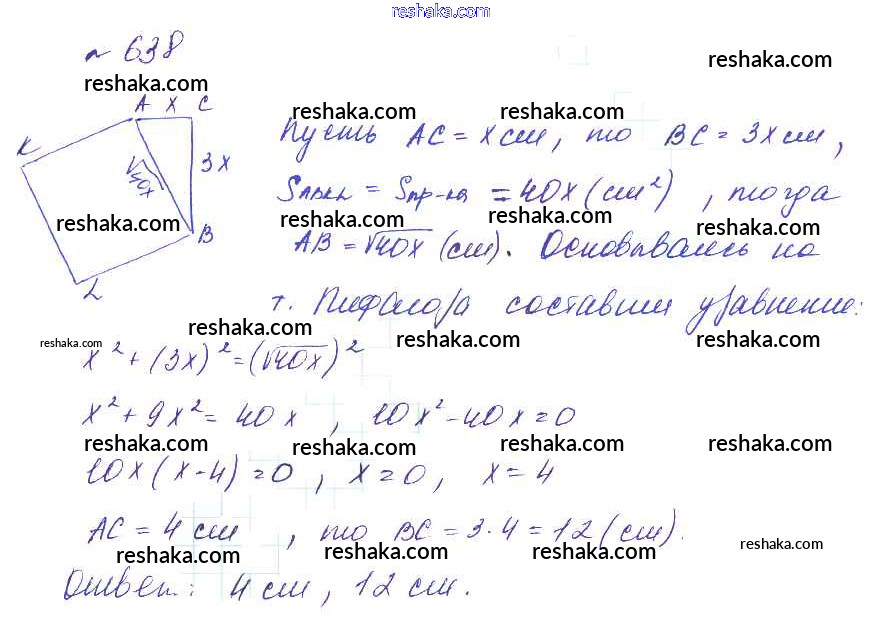 reshaka.com
№ 638
reshaka.com reshaka.com
A x C
reshaka.com reshaka.com
K
Пусть AC = x см, то BC = 3x см,
3x
√40x
Sпркв = Sпр-ка = 40x (см²), тогда
reshaka.com reshaka.com reshaka.com reshaka.com
B
AB = √40x (см). Основываясь на
L
т. Пифагора составим уравнение:
reshaka.com reshaka.com reshaka.com reshaka.com
x² + (3x)² = (√40x)²
x² + 9x² = 40x, 10x² - 40x = 0
reshaka.com reshaka.com reshaka.com reshaka.com
10x(x-4) = 0, x = 0, x = 4
AC = 4 см, то BC = 3·4 = 12 (см).
reshaka.com reshaka.com reshaka.com reshaka.com
Ответ: 4 см, 12 см.